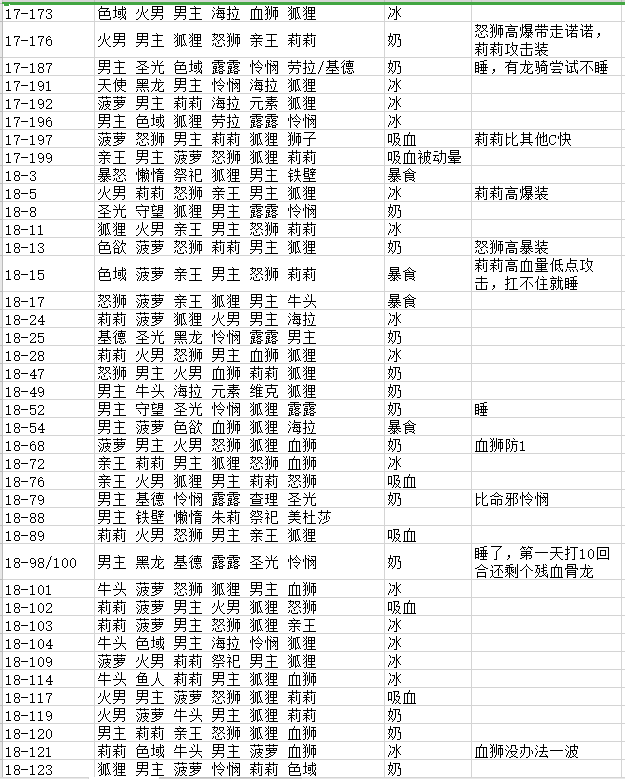 17-173 色域 火男 男主 海拉 血狮 狐狸 冰
17-176 火男 男主 狐狸 怒狮 亲王 莉莉 奶 怒狮高爆带走诺诺，
莉莉攻击装
17-187 男主 圣光 色域 露露 怜悯 劳拉/基德 奶 睡，有龙骑尝试不睡
17-191 天使 黑龙 男主 怜悯 海拉 狐狸 冰
17-192 菠萝 男主 莉莉 海拉 元素 狐狸 冰
17-196 男主 色域 狐狸 劳拉 露露 怜悯 冰
17-197 菠萝 怒狮 男主 莉莉 狐狸 狮子 吸血 莉莉比其他C快
17-199 亲王 男主 菠萝 怒狮 狐狸 莉莉 吸血被动晕
18-3 暴怒 懒惰 祭祀 狐狸 男主 铁壁 暴食
18-5 火男 莉莉 怒狮 亲王 男主 狐狸 冰 莉莉高爆装
18-8 圣光 守望 狐狸 男主 露露 怜悯 奶
18-11 狐狸 火男 亲王 男主 怒狮 莉莉 冰
18-13 色欲 菠萝 怒狮 莉莉 男主 狐狸 奶 怒狮高暴装
18-15 色域 菠萝 亲王 男主 怒狮 莉莉 暴食 莉莉高血量低点攻
击，扛不住就睡
18-17 怒狮 菠萝 亲王 狐狸 男主 牛头 暴食
18-24 莉莉 菠萝 狐狸 火男 男主 海拉 冰
18-25 基德 圣光 黑龙 怜悯 露露 男主 奶
18-28 莉莉 火男 怒狮 男主 血狮 狐狸 冰
18-47 怒狮 男主 火男 血狮 莉莉 狐狸 奶
18-49 男主 牛头 海拉 元素 维克 狐狸 奶
18-52 男主 守望 圣光 怜悯 狐狸 露露 奶 睡
18-54 男主 菠萝 色欲 血狮 狐狸 海拉 暴食
18-68 菠萝 男主 火男 怒狮 狐狸 血狮 奶 血狮防1
18-72 亲王 莉莉 男主 狐狸 怒狮 血狮 冰
18-76 亲王 火男 狐狸 男主 莉莉 怒狮 吸血
18-79 男主 基德 怜悯 露露 查理 圣光 奶 比命邪怜悯
18-88 男主 铁壁 懒惰 朱莉 祭祀 美杜莎
18-89 莉莉 火男 怒狮 男主 亲王 狐狸 吸血
18-98/100 男主 黑龙 基德 露露 圣光 怜悯 奶 睡了，第一天打10回
合还剩个残血骨龙
18-101 牛头 菠萝 怒狮 狐狸 男主 血狮 冰
18-102 莉莉 菠萝 男主 火男 狐狸 怒狮 吸血
18-103 莉莉 菠萝 男主 怒狮 狐狸 亲王 冰
18-104 牛头 色域 男主 海拉 怜悯 狐狸 冰
18-109 菠萝 火男 莉莉 祭祀 男主 狐狸 冰
18-114 牛头 鱼人 莉莉 男主 狐狸 血狮 冰
18-117 火男 男主 菠萝 怒狮 狐狸 莉莉 吸血
18-119 火男 菠萝 牛头 男主 狐狸 莉莉 奶
18-120 男主 莉莉 亲王 怒狮 狐狸 血狮 奶
18-121 莉莉 色域 牛头 男主 菠萝 血狮 冰 血狮没办法一波
18-123 狐狸 男主 菠萝 怜悯 莉莉 色域 奶